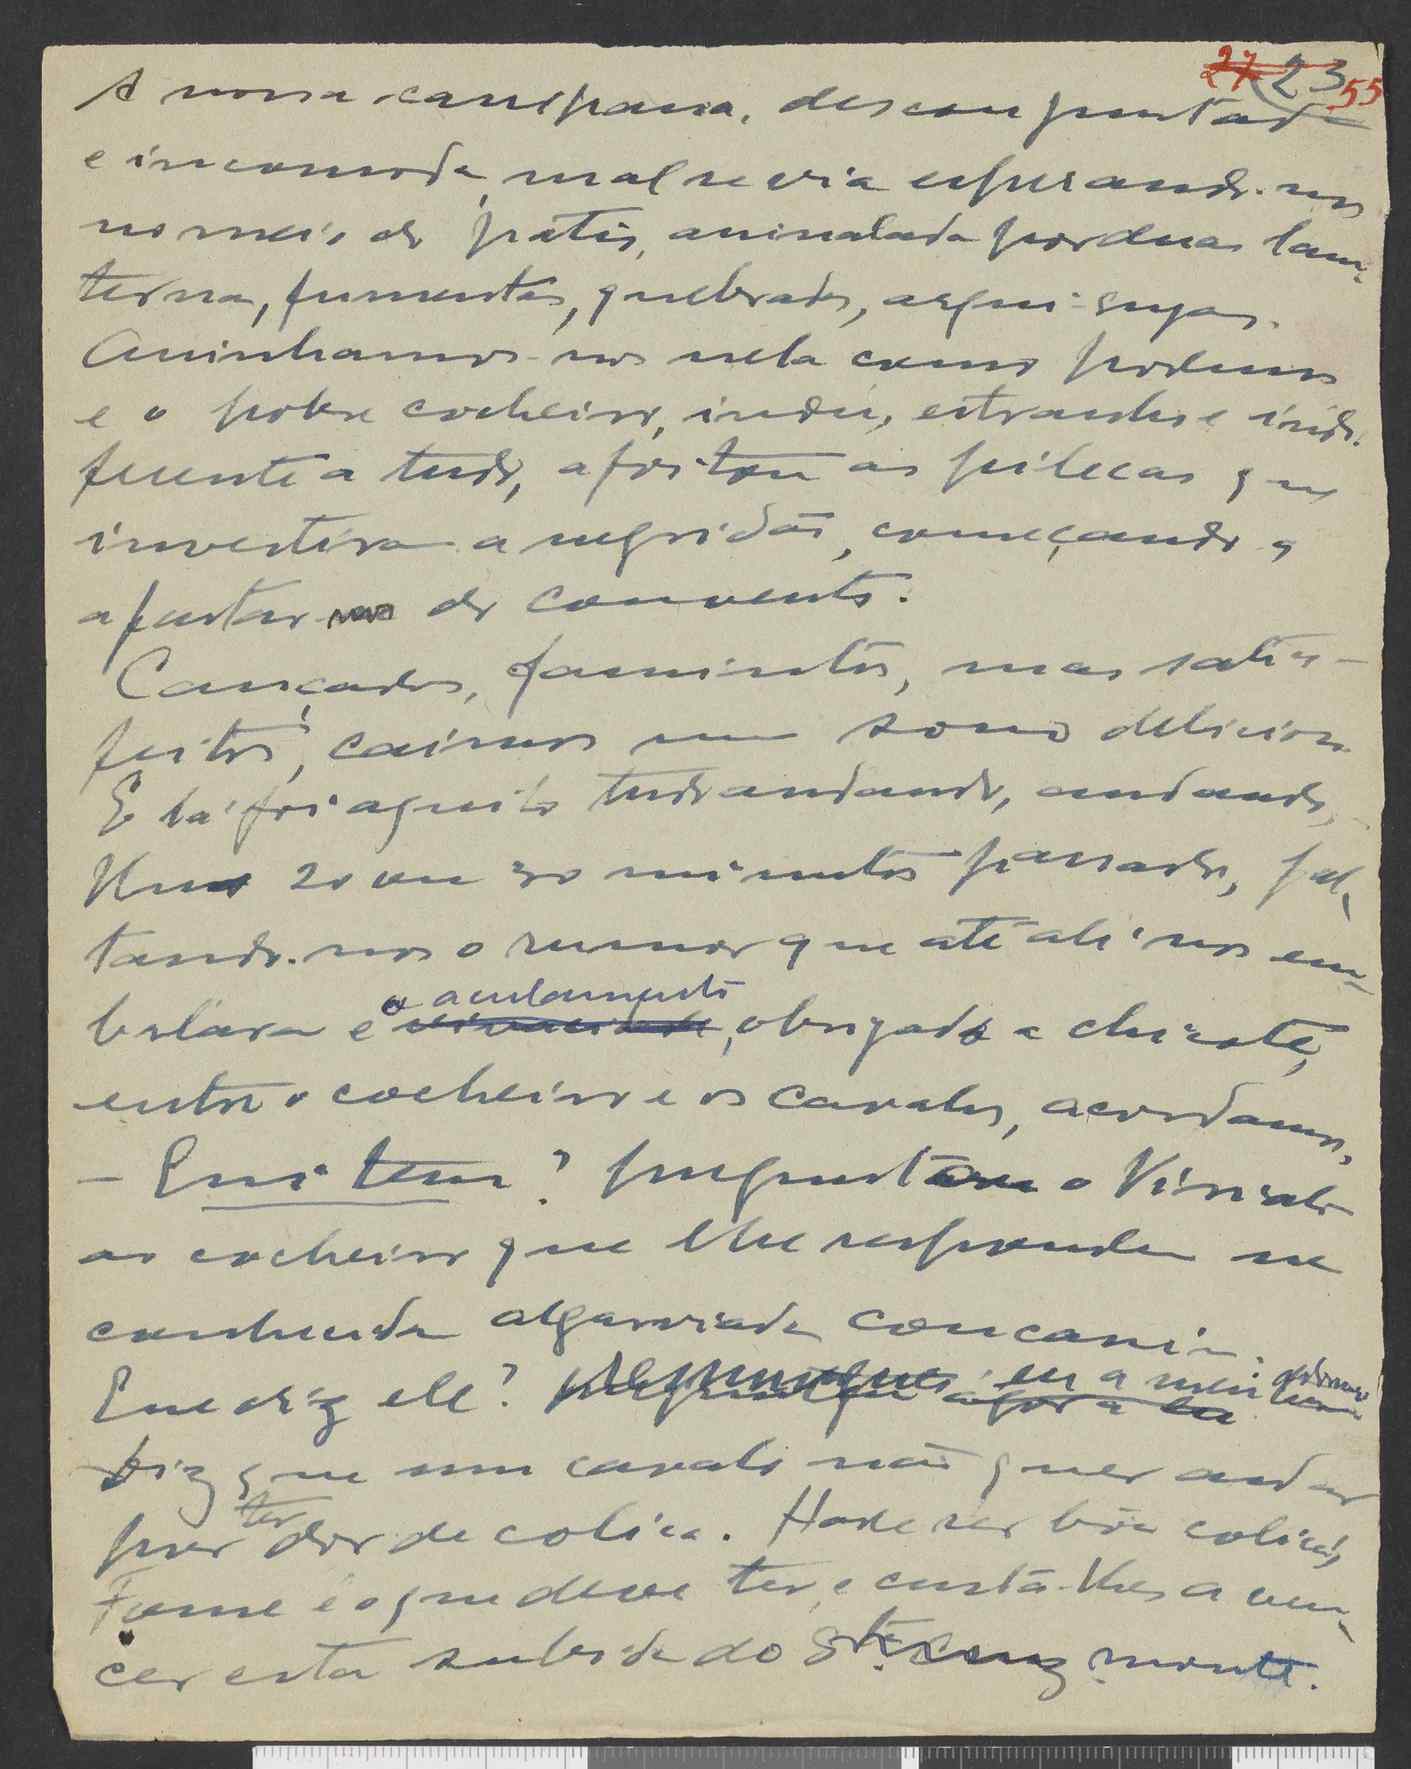 27 23 55
A nossa carripana, desconjuntada
e incomoda, mal se via esperando-nos
no meio do patio, assinalada por duas lan-
ternas, fumentas, quebradas,
Aninhamo-nos nela como podemos
e o pobre cocheiro, indú, estranho e indi-
ferente a tudo, afoitou as pilecas que
investiram a negridão, começando a
afastar-nos do convento.
Cançados, famintos, mas satis-
feitos, caimos num sono delicioso.
E lá foi aquilo tudo andando, andando,
Uns 20 ou 30 minutos passados, fal-
tando-nos o rumor que até ali nos em-
balara e o açulamento vivacidade, obrigado a chicote,
entre o cocheiro e os cavalos, acordamos,
- Qui tem? preguntou o Visconde
ao cocheiro que lhe respondeu na
conhecida algaraviada concanim.
Que diz ele? eu a meu
Diz que um cavalo não quer andar
por ter dor de colica. Hade ser bôa colica,
Fome é o que deve ter, e custa-lhes a ven-
cer esta subida do Sta. Cruz monte.